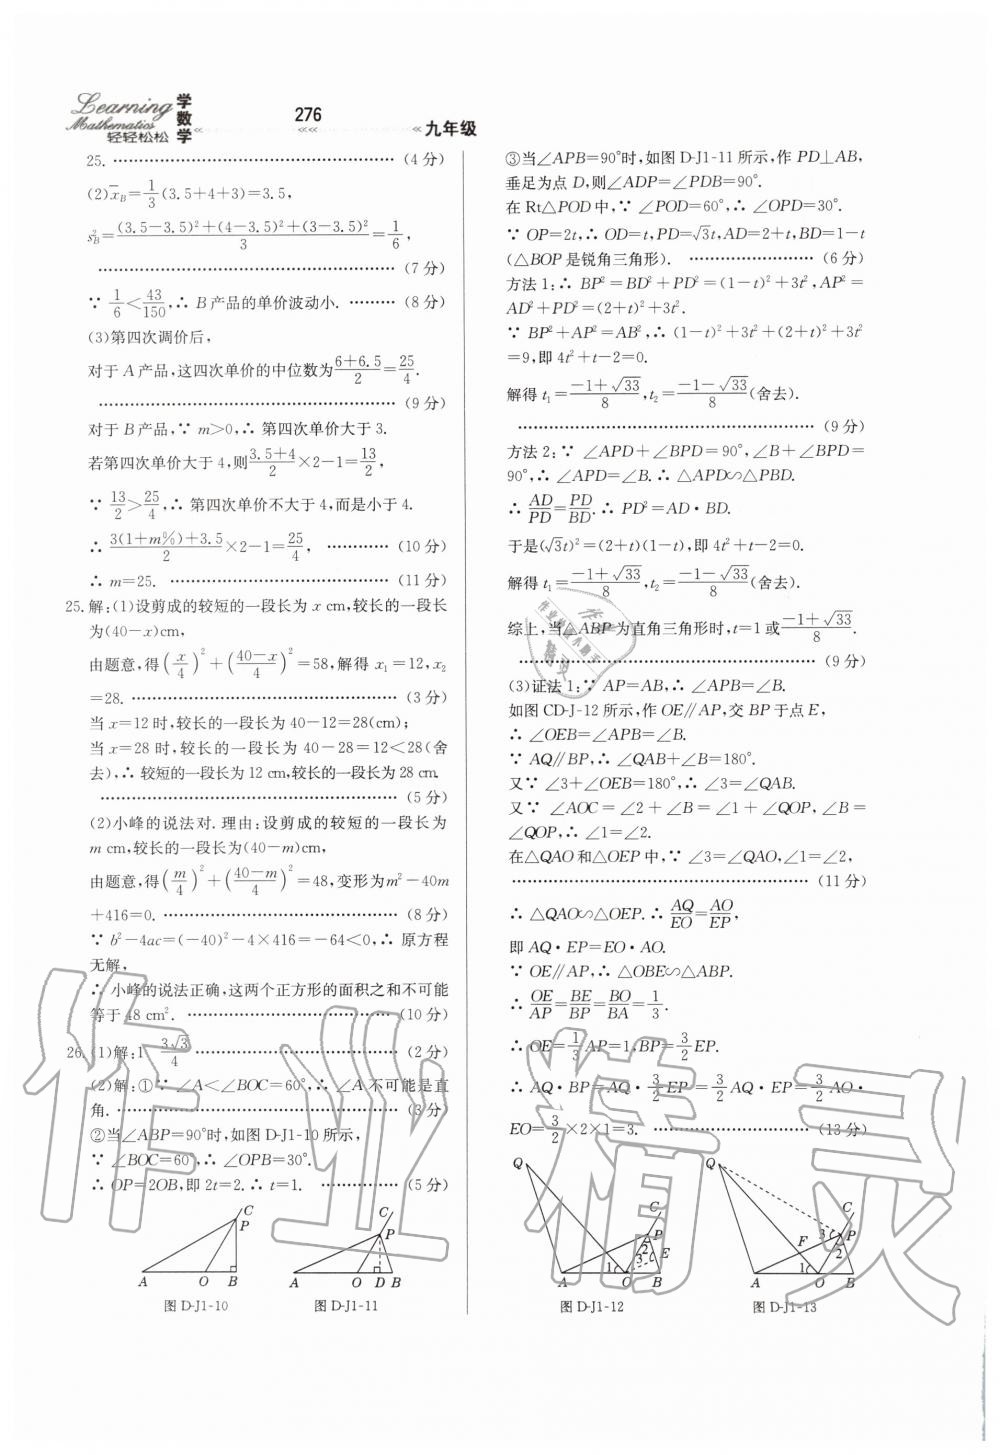 Learning
Mathematics
轻轻松松
学数学
276
九年级
25. (4 分)
(2)x̄_B=1/3(3.5+4+3)=3.5,
s²_B=((3.5-3.5)²+(4-3.5)²+(3-3.5)²)/3=1/6,
(7 分)
∵ 1/6<43/150,∴ B产品的单价波动小. (8 分)
(3)第四次调价后,
对于A产品,这四次单价的中位数为(6+6.5)/2=25/4.
(9 分)
对于B产品,∵ m>0,∴ 第四次单价大于3.
若第四次单价大于4,则(3.5+4)/2×2-1=13/2,
∵ 13/2>25/4,∴ 第四次单价不大于4,而是小于4.
∴ (3(1+m%)+3.5)/2×2-1=25/4, (10 分)
∴ m=25. (11 分)
25.解:(1)设剪成的较短的一段长为x cm,较长的一段长
为(40-x)cm,
由题意,得(x/4)²+((40-x)/4)²=58,解得x₁=12,x₂
=28. (3 分)
当x=12时,较长的一段长为40-12=28(cm);
当x=28时,较长的一段长为40-28=12<28(舍
去),∴ 较短的一段长为12 cm,较长的一段长为28 cm.
(5 分)
(2)小峰的说法对.理由:设剪成的较短的一段长为
m cm,较长的一段长为(40-m)cm,
由题意,得(m/4)²+((40-m)/4)²=48,变形为m²-40m
+416=0. (8 分)
∵ b²-4ac=(-40)²-4×416=-64<0,∴ 原方程
无解,
∴ 小峰的说法正确,这两个正方形的面积之和不可能
等于48 cm². (10 分)
26.(1)解:1 3√3/4 (2 分)
(2)解:①∵ ∠A<∠BOC=60°,∴ ∠A不可能是直
角. (3 分)
②当∠ABP=90°时,如图D-J1-10所示,
∵ ∠BOC=60°,∴ ∠OPB=30°.
∴ OP=2OB,即2t=2.∴ t=1. (5 分)
C
P
A O B
图 D-J1-10
C
P
A O D B
图 D-J1-11
③当∠APB=90°时,如图D-J1-11所示,作PD⊥AB,
垂足为点D,则∠ADP=∠PDB=90°.
在Rt△POD中,∵ ∠POD=60°,∴ ∠OPD=30°.
∵ OP=2t,∴ OD=t,PD=√3t,AD=2+t,BD=1-t
(△BOP是锐角三角形). (6 分)
方法1:∴ BP²=BD²+PD²=(1-t)²+3t²,AP²=
AD²+PD²=(2+t)²+3t².
∵ BP²+AP²=AB²,∴ (1-t)²+3t²+(2+t)²+3t²
=9,即4t²+t-2=0.
解得t₁=(-1+√33)/8,t₂=(-1-√33)/8(舍去).
(9 分)
方法2:∵ ∠APD+∠BPD=90°,∠B+∠BPD=
90°,∴ ∠APD=∠B.∴ △APD∽△PBD.
∴ AD/PD=PD/BD.∴ PD²=AD·BD.
于是(√3t)²=(2+t)(1-t),即4t²+t-2=0.
解得t₁=(-1+√33)/8,t₂=(-1-√33)/8(舍去).
综上,当△ABP为直角三角形时,t=1或(-1+√33)/8.
(9 分)
(3)证法1:∵ AP=AB,∴ ∠APB=∠B.
如图CD-J-12所示,作OE∥AP,交BP于点E,
∴ ∠OEB=∠APB=∠B.
∵ AQ∥BP,∴ ∠QAB+∠B=180°.
又∵ ∠3+∠OEB=180°,∴ ∠3=∠QAB.
又∵ ∠AOC=∠2+∠B=∠1+∠QOP,∠B=
∠QOP,∴ ∠1=∠2.
在△QAO和△OEP中,∵ ∠3=∠QAO,∠1=∠2,
(11 分)
∴ △QAO∽△OEP.∴ AQ/EO=AO/EP,
即AQ·EP=EO·AO.
∵ OE∥AP,∴ △OBE∽△ABP.
∴ OE/AP=BE/BP=BO/BA=1/3.
∴ OE=1/3AP=1,BP=3/2EP.
∴ AQ·BP=AQ·3/2EP=3/2AQ·EP=3/2AO·
EO=3/2×2×1=3. (13 分)
Q
C
P
2
3 E
1
A O B
图 D-J1-12
Q
C
3 P
F 2
1
A O B
图 D-J1-13
作业精灵